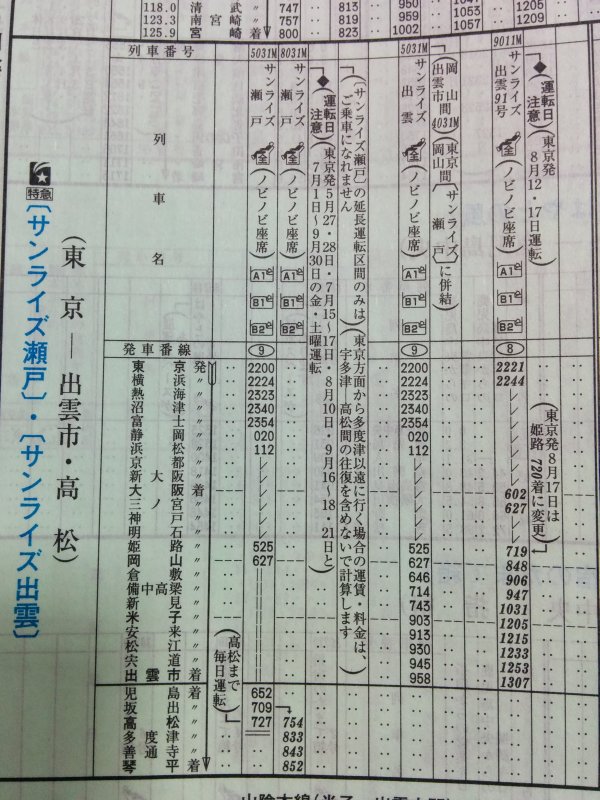 118.0 清武 〃 747 813 950 1047 1205
123.3 南宮崎 〃 757 819 959 1053 1209
125.9 宮崎 着 800 823 1002 1057
列車番号 5031M 8031M 5031M 9011M
列車名
サンライズ瀬戸
(ノビノビ座席)
サンライズ瀬戸
(ノビノビ座席)
◆(運転日注意)(東京発5月27・28日・7月15~17日・8月10日・9月16~18・21日と7月1日~9月30日の金・土曜運転)
(〔サンライズ瀬戸〕の延長運転区間のみはご乗車になれません)
(東京方面から多度津以遠に行く場合の運賃・料金は、宇多津―高松間の往復を含めないで計算します)
サンライズ出雲
(ノビノビ座席)
(岡山―出雲市間4031M)
(東京―岡山間〔サンライズ瀬戸〕に併結)
サンライズ出雲91号
(ノビノビ座席)
◆(運転日注意)(東京発8月12・17日運転)
A1 A1 A1 A1
B1 B1 B1 B1
B2 B2 B2 B2
特急
〔サンライズ瀬戸〕・〔サンライズ出雲〕
(東京―出雲市・高松)
発車番線 ⑨ ⑨ ⑧
東京 発 2200 2200 2221
横浜 〃 2224 2224 2244
熱海 〃 2323 2323
沼津 〃 2340 2340
富士 〃 2354 2354
静岡 〃 020 020
浜松 〃 112 112
京都 〃
新大阪 〃
大阪 着 602
三ノ宮 〃 627
神戸 〃
明石 〃
姫路 〃 525 525 719
岡山 〃 627 627 848
倉敷 〃 646 906
備中高梁 〃 714 947
新見 〃 743 1031
米子 〃 903 1205
安来 〃 913 1215
松江 〃 930 1233
宍道 〃 945 1253
出雲市 着 958 1307
(東京発8月17日は姫路720着に変更)
児島 着 652
坂出 〃 709
高松 〃 727 754
多度津 〃 833
善通寺 〃 843
琴平 着 852
(高松まで毎日運転)